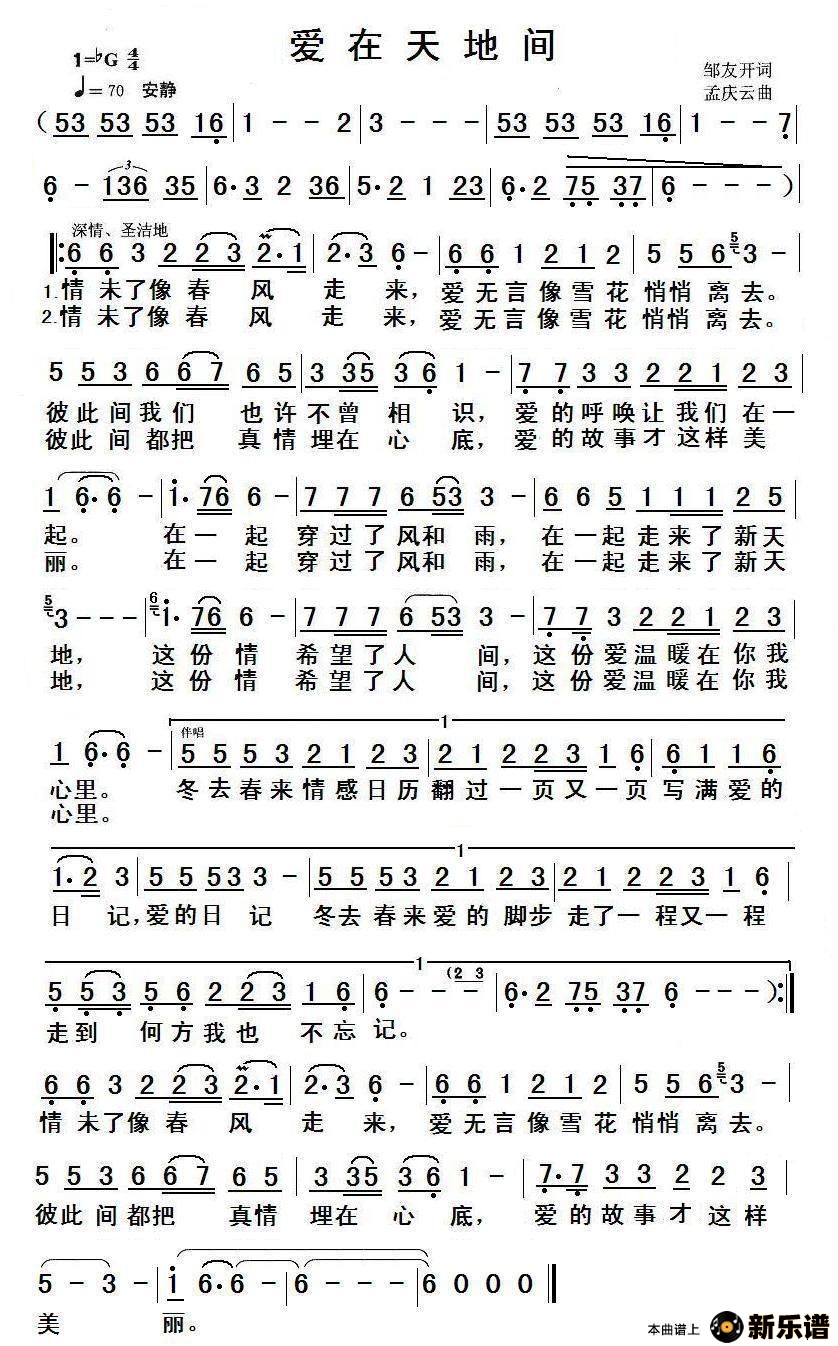 爱在天地间
1=♭G 4/4
♩=70 安静
邹友开词
孟庆云曲
(53 53 53 16 | 1 - - 2 | 3 - - - | 53 53 53 16 | 1 - - 7 |
6 - 136 35 | 6· 3 2 36 | 5· 2 1 23 | 6· 2 75 37 | 6 - - - )
深情、圣洁地
6 6 3 2 2 3 2·1 | 2·3 6 - | 6 6 1 2 1 2 | 5 5 6 3 - |
1.情未了像春风走来,爱无言像雪花悄悄离去。
2.情未了像春风走来,爱无言像雪花悄悄离去。
5 5 3 6 6 7 6 5 | 3 35 3 6 1 - | 7 7 3 3 2 2 1 2 3 |
彼此间我们也许不曾相识,爱的呼唤让我们在一
彼此间都把真情埋在心底,爱的故事才这样美
1 6·6 - | 1· 76 6 - | 7 7 7 6 53 3 - | 6 6 5 1 1 1 2 5 |
起。在一起穿过了风和雨,在一起走来了新天
丽。在一起穿过了风和雨,在一起走来了新天
5 3 - - - | 6 1· 76 6 - | 7 7 7 6 53 3 - | 7 7 3 2 2 1 2 3 |
地,这份情希望了人间,这份爱温暖在你我
地,这份情希望了人间,这份爱温暖在你我
1
伴唱
1 6·6 - | 5 5 5 3 2 1 2 3 | 2 1 2 2 3 1 6 | 6 1 1 6 |
心里。冬去春来情感日历翻过一页又一页写满爱的
心里。
1
1·2 3 | 5 5 53 3 - | 5 5 53 2 1 2 3 | 2 1 2 2 3 1 6 |
日记,爱的日记冬去春来爱的脚步走了一程又一程
1
5 5 3 5 6 2 2 3 1 6 | 6 - - (2 3 - | 6·2 75 37 6 - - - ) :‖
走到何方我也不忘记。
6 6 3 2 2 3 2·1 | 2·3 6 - | 6 6 1 2 1 2 | 5 5 6 5 3 - |
情未了像春风走来,爱无言像雪花悄悄离去。
5 5 3 6 6 7 6 5 | 3 35 3 6 1 - | 7·7 3 3 2 2 3 |
彼此间都把真情埋在心底,爱的故事才这样
5 - 3 - | 1 6·6 - | 6 - - - | 6 0 0 0 ‖
美丽。
本曲谱上 新乐谱